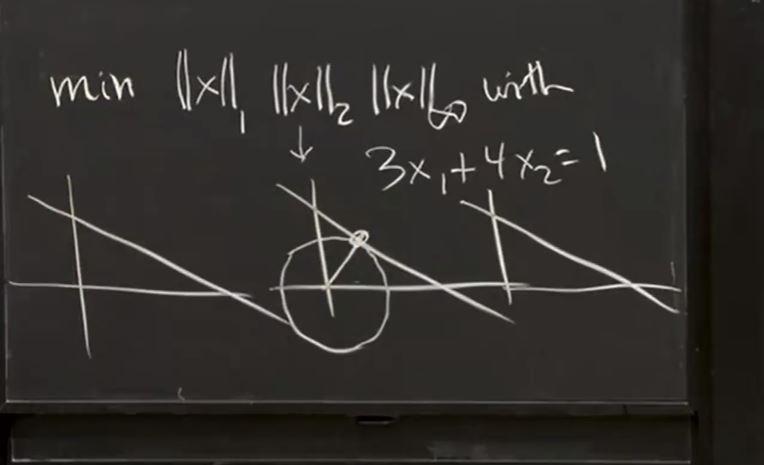 min ||x||₁ ||x||₂ ||x||∞ with
3x₁+4x₂=1